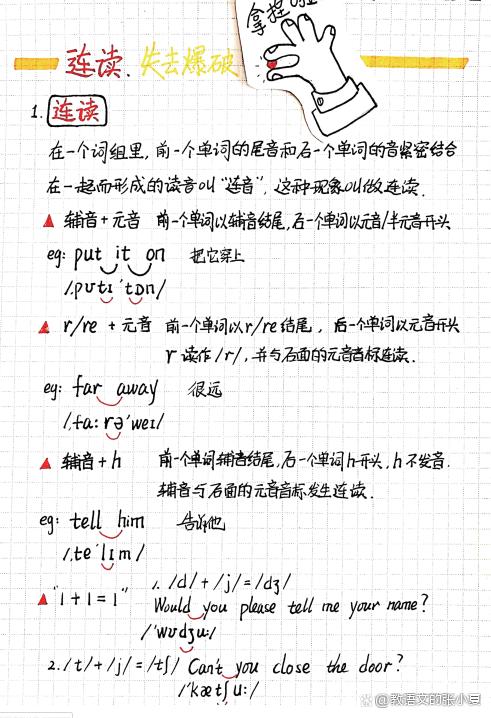 拿捏啦
连读、失去爆破
1. 连读
在一个词组里，前一个单词的尾音和后一个单词的音紧密结合
在一起而形成的读音叫“连音”，这种现象叫做连读．
▲ 辅音＋元音 前一个单词以辅音结尾，后一个单词以元音/半元音开头
eg: put it on 把它穿上
/ˌpʊtɪ ˈtɒn/
▲ r/re + 元音 前一个单词以r/re结尾，后一个单词以元音开头
r 读作/r/，并与后面的元音音标连读．
eg: far away 很远
/ˌfɑː rəˈweɪ/
▲ 辅音＋h 前一个单词辅音结尾，后一个单词h开头，h不发音．
辅音与后面的元音音标发生连读．
eg: tell him 告诉他
/ˌteˈlɪm/
▲ "1+1=1" 1. /d/+/j/=/dʒ/
Would you please tell me your name?
/ˈwʊdʒuː/
2. /t/+/j/=/tʃ/ Can't you close the door?
/ˈkætʃuː/
@教语文的张小夏